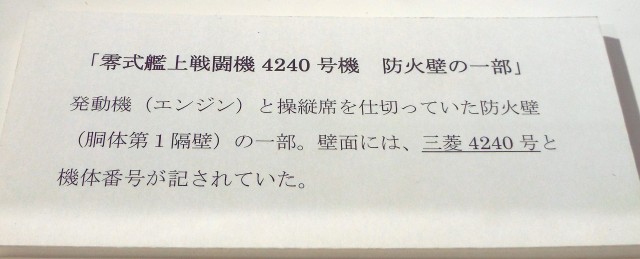 「零式艦上戦闘機 4240 号機　防火壁の一部」
発動機（エンジン）と操縦席を仕切っていた防火壁
（胴体第 1 隔壁）の一部。壁面には、三菱 4240 号と
機体番号が記されていた。